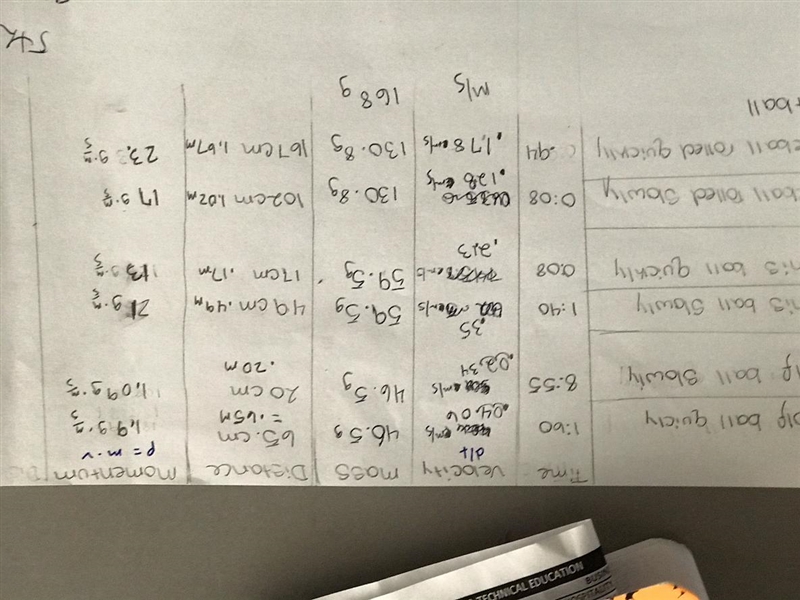 Time Velocity Mass Distance Momentum
d/t p = m·v
golf ball quickly 1:60 .0406 46.5g 65.cm = .65m 1.9 g·m/s
golf ball Slowly 8:55 .0234 m/s 46.5g 20cm .20m 1.09 g·m/s
tennis ball Slowly 1:40 .35 m/s 59.5g 49cm .49m 21 g·m/s
tennis ball quickly 0.08 .213 59.5g 17cm .17m 13 g·m/s
ball rolled Slowly 0:08 .128 m/s 130.8g 102cm 1.02m 17 g·m/s
ball rolled quickly .94 .178 m/s 130.8g 167cm 1.67m 23. g·m/s
ball m/s 168g
TECHNICAL EDUCATION